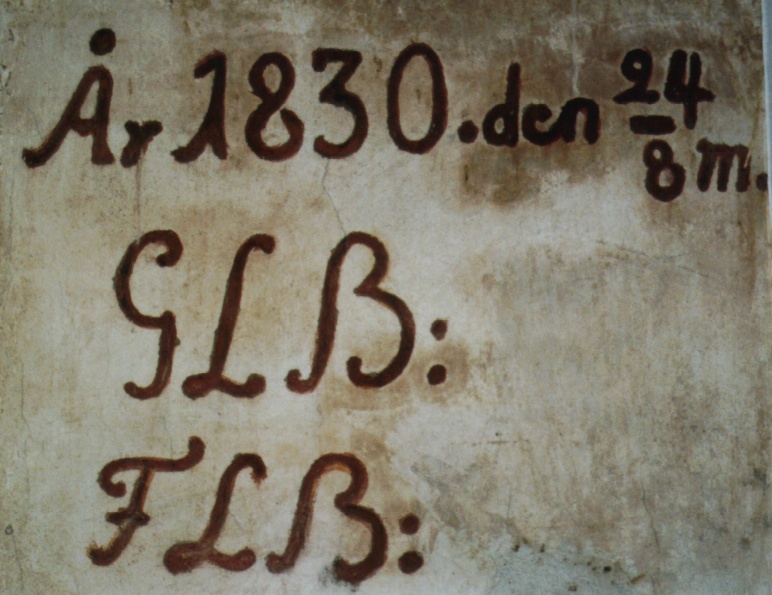 År 1830. den 24/8 m.
GLB:
FLB: